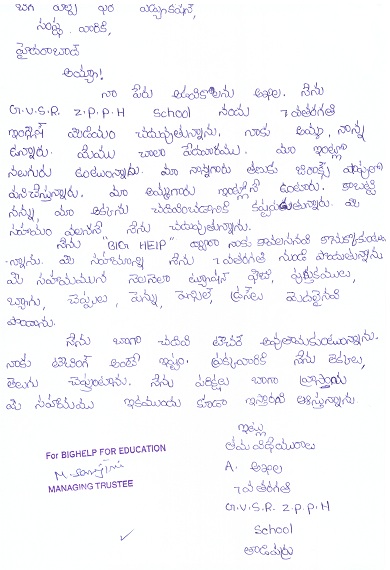 బిగ్ హెల్ప్ ఫర్ ఎడ్యుకేషన్,
సంస్థ వారికి,
హైదరాబాద్
అయ్యా!
నా పేరు అఖిల. నేను
G.V.S.R. Z.P.P.H School నందు 7వ తరగతి
ఇంగ్లీష్ మీడియం చదువుతున్నాను. నాకు అమ్మ, నాన్న
ఉన్నారు. మేము చాలా పేదవారము. మా ఇంట్లో
నలుగురు ఉంటున్నాము. మా నాన్నగారు
పనిచేస్తున్నారు. మా అమ్మగారు ఇంట్లోనే ఉంటారు. కాబట్టి
నన్ను, మా అక్కను చదివించడానికి కష్టపడుతున్నారు. మీ
సహాయం వలననే నేను చదువుతున్నాను.
నేను "BIG HELP" ద్వారా నాకు కావలసినవి
-న్నాను. మీ సహాయాన్ని నేను 7వ తరగతి నుండి పొందుతున్నాను
మీ సహాయమున ట్యూషన్ ఫీజు, పుస్తకములు,
బ్యాగు, చెప్పులు, పెన్ను, డ్రస్లు మొదలైనవి
పొందాను.
నేను బాగా చదివి టీచర్ అవ్వాలనుకుంటున్నాను.
నాకు టీచింగ్ అంటే ఇష్టం. నేను లెక్కలు,
తెలుగు చెప్తుంటాను. నేను పరీక్షలు బాగా వ్రాస్తాను
మీ సహాయము ఇకముందు కూడా ఇస్తారని ఆశిస్తున్నాను
ఇట్లు
తమ విధేయురాలు
A. అఖిల
7వ తరగతి
G.V.S.R. Z.P.P.H
School
తాడిపర్రు
For BIGHELP FOR EDUCATION
M. Sarojini
MANAGING TRUSTEE